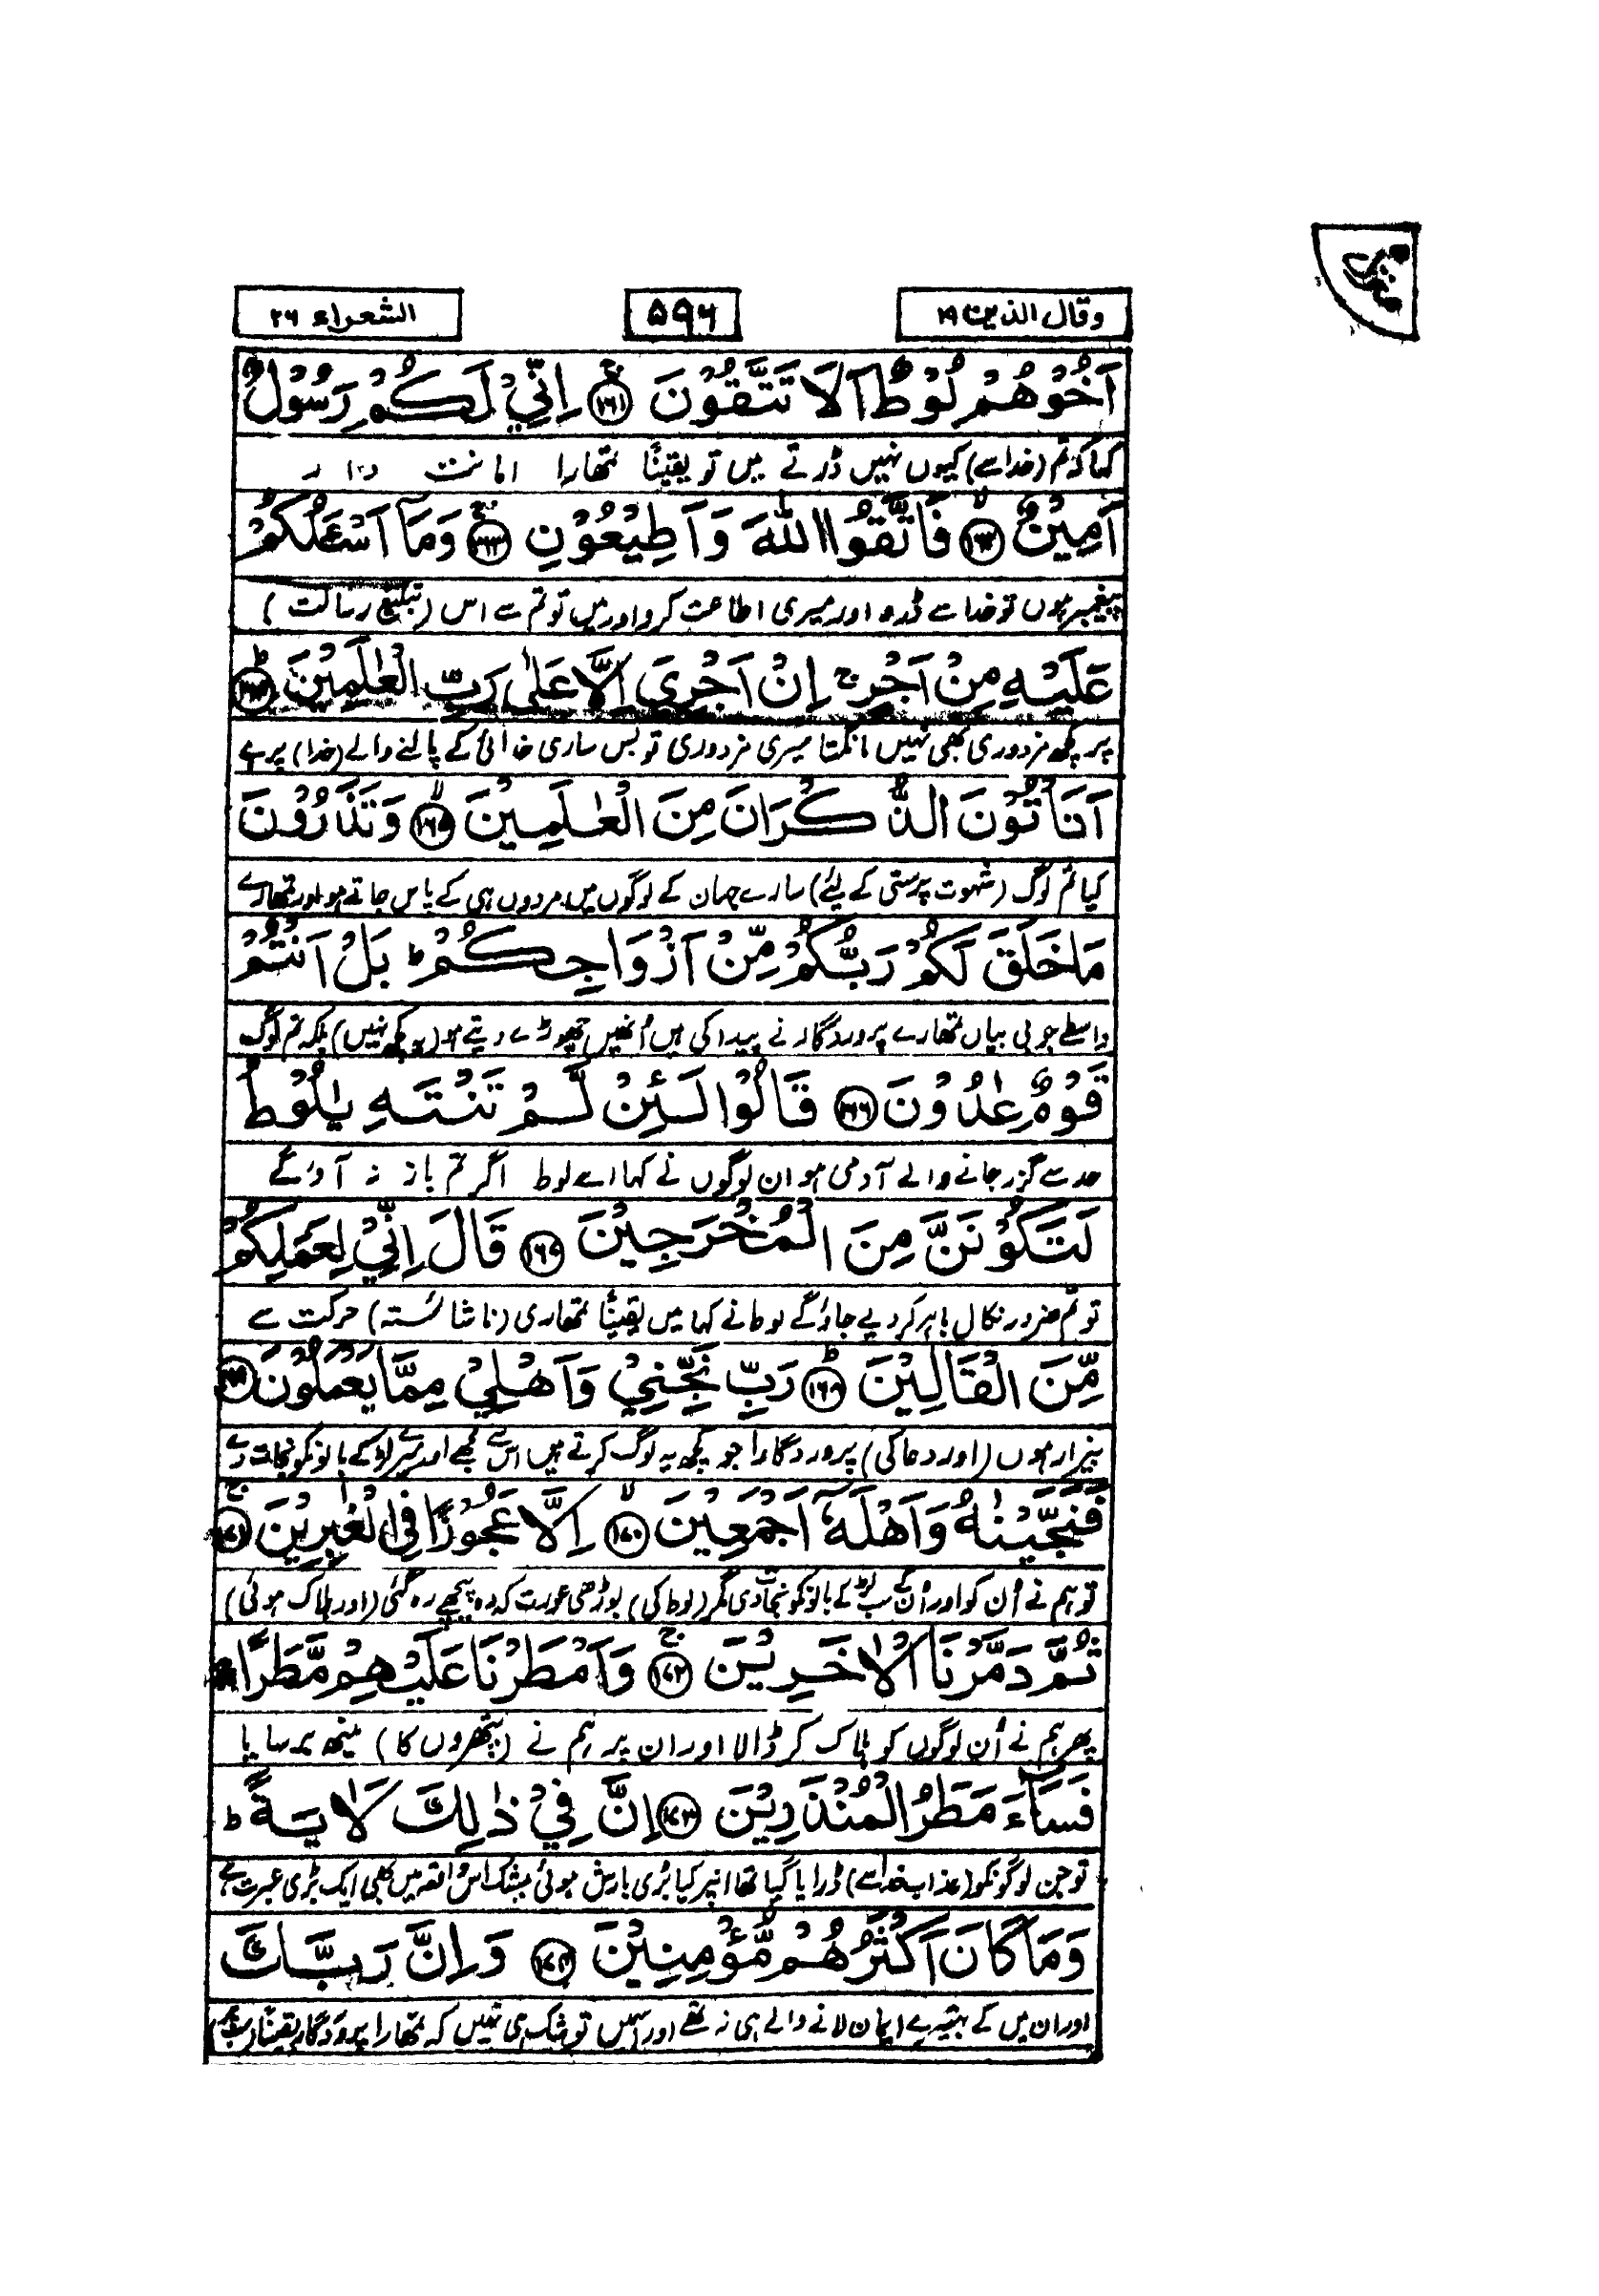 وقال الذین ۱۹
۵۹۶
الشعراء ۲۶
اَخُوْهُمْ لُوْطٌ اَلَا تَتَّقُوْنَ ۚ﴿۱۶۱﴾ اِنِّیْ لَكُمْ رَسُوْلٌ
کہا کہ تم (خدا سے) کیوں نہیں ڈرتے میں تو یقینًا تمھارا امانت
اَمِیْنٌ ۙ﴿۱۶۲﴾ فَاتَّقُوا اللّٰهَ وَ اَطِیْعُوْنِ ۚ﴿۱۶۳﴾ وَ مَاۤ اَسْئَلُكُمْ
پیغمبر ہوں تو خدا سے ڈرو اور میری اطاعت کرو اور میں تو تم سے اس (تبلیغ رسالت)
عَلَیْهِ مِنْ اَجْرٍ ۚ اِنْ اَجْرِیَ اِلَّا عَلٰی رَبِّ الْعٰلَمِیْنَ ؕ﴿۱۶۴﴾
پر کچھ مزدوری بھی نہیں مانگتا میری مزدوری تو بس ساری خدائی کے پالنے والے (خدا) پر ہے
اَتَاْتُوْنَ الذُّكْرَانَ مِنَ الْعٰلَمِیْنَ ۙ﴿۱۶۵﴾ وَ تَذَرُوْنَ
کیا تم لوگ (شہوت پرستی کے لیے) سارے جہان کے لوگوں میں مردوں ہی کے پاس جاتے ہو اور تمھارے
مَا خَلَقَ لَكُمْ رَبُّكُمْ مِّنْ اَزْوَاجِكُمْ ؕ بَلْ اَنْتُمْ
واسطے جو بی بیاں تمھارے پروردگار نے پیدا کی ہیں اُنھیں چھوڑے دیتے ہو (یہ کچھ نہیں) بلکہ تم لوگ
قَوْمٌ عٰدُوْنَ ﴿۱۶۶﴾ قَالُوْا لَئِنْ لَّمْ تَنْتَهِ یٰلُوْطُ
حد سے گزر جانے والے آدمی ہو ان لوگوں نے کہا اے لوط اگر تم باز نہ آؤ گے
لَتَكُوْنَنَّ مِنَ الْمُخْرَجِیْنَ ﴿۱۶۷﴾ قَالَ اِنِّیْ لِعَمَلِكُمْ
تو تم ضرور نکال باہر کر دیے جاؤ گے لوط نے کہا میں یقینًا تمھاری (ناشائستہ) حرکت سے
مِّنَ الْقَالِیْنَ ؕ﴿۱۶۸﴾ رَبِّ نَجِّنِیْ وَ اَهْلِیْ مِمَّا یَعْمَلُوْنَ ﴿۱۶۹﴾
بیزار ہوں (اور دعا کی) پروردگارا جو کچھ یہ لوگ کرتے ہیں اس سے مجھے اور میرے لڑکے بالوں کو نجات دے
فَنَجَّیْنٰهُ وَ اَهْلَهٗۤ اَجْمَعِیْنَ ۙ﴿۱۷۰﴾ اِلَّا عَجُوْزًا فِی الْغٰبِرِیْنَ ۚ﴿۱۷۱﴾
تو ہم نے اُن کو اور اُن کے سب لڑکے بالوں کو نجات دی مگر (لوط کی) بوڑھی عورت کہ وہ پیچھے رہ گئی (اور ہلاک ہوئی)
ثُمَّ دَمَّرْنَا الْاٰخَرِیْنَ ۚ﴿۱۷۲﴾ وَ اَمْطَرْنَا عَلَیْهِمْ مَّطَرًا
پھر ہم نے اُن لوگوں کو ہلاک کر ڈالا اور ان پر ہم نے (پتھروں کا) مینھ برسایا
فَسَآءَ مَطَرُ الْمُنْذَرِیْنَ ﴿۱۷۳﴾ اِنَّ فِیْ ذٰلِكَ لَاٰیَةً ؕ
تو جن لوگونکو (عذاب خدا سے) ڈرایا گیا تھا انپر کیا بُری بارش ہوئی بیشک اس واقعہ میں بھی ایک بڑی عبرت ہے
وَ مَا كَانَ اَكْثَرُهُمْ مُّؤْمِنِیْنَ ﴿۱۷۴﴾ وَ اِنَّ رَبَّكَ
اور ان میں کے بہتیرے ایمان لانے والے ہی نہ تھے اور اسمیں تو شک ہی نہیں کہ تمھارا پروردگار یقینًا